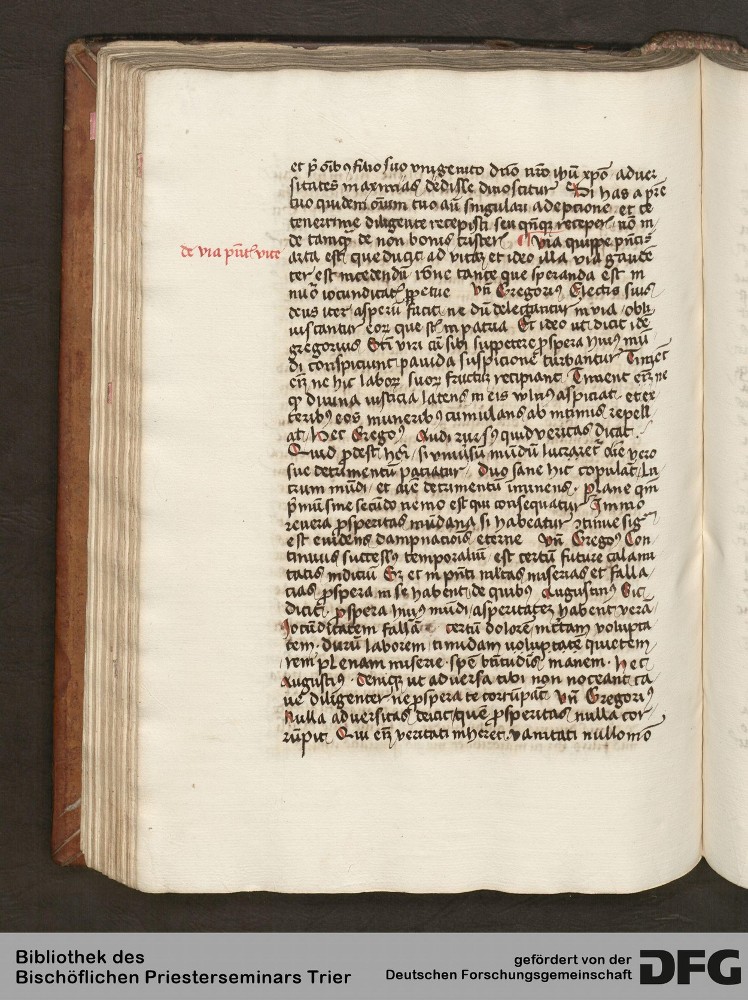 et p̄ oīb9 filio suo vnigenito dn̄o nr̄o ihū xpō aduer
sitates maximas dedisse dinoscitur Si has a pr̄e
tuo quidem om̄m tuo aūt singulari adeptione et te
tenerrime diligente recepisti seu qn̄q; receper nō in
de tamq̄ de non bonis tristeř Via quippe pn̄tis
de via pn̄tis vite
arta est que ducit ad vitaz et ideo illa via gaude
ter est incedendū rōne tante que speranda est in
iocunditat perpetue vn̄ Gregorius Electis suis
deus iter asperū facit ne dū delectantur in via obli
uiscantur eor que st̄ in patria Et ideo ut dicit idē
gregorius Etn̄ viri cū sibi suppetere prospera hui9 mū
di conspiciunt pauida suspicione turbantur Timēt
em̄ ne hic labor suor fructus recipiant Timent em̄ ne
q divina iusticia latens in eis wln9 aspiciat et ex
terib9 eos munerib9 cumulans ab intimis repell
at hec Grego9 Audi rursus quid veritas dicat
Quid prodest hōi si vniuersū mūdū lucraret aīe vero
sue detrimentū patiatur Duo sane hic copulat lu
crum mūdi et aīe detrimentū iminens plane qm̄
primū sine secūdo nemo est qui consequatur Immo
revera prosperitas mūdana si habeatur ↄtinue sig
est euidens dampnacionis eterne vn̄ Grego9 Con
tinuus successus temporaliū est certū future calami
tatis indiciū Sz et in pn̄ti ml̄tas miserias et falla
cias prospera in se habent de quibus Augustinus sic
dicit prospera hui9 mūdi asperitatez habent verā
Iocūditatem fallsā certū dolorem incertam volupta
tem durū laborem timidam voluptatē quietem
rem plenam miserie spē btītudinis inanem hec
Augustius deniq; ut aduersa tibi non noceant ca
ue diligenter ne prospera te corrūpāt vn̄ Gregori9
Nulla aduersitas deicit quē prosperitas nulla cor
rūpit Qui em̄ veritati inheret vanitati nullomō
Bibliothek des
Bischöflichen Priesterseminars Trier
gefördert von der
Deutschen Forschungsgemeinschaft
DFG